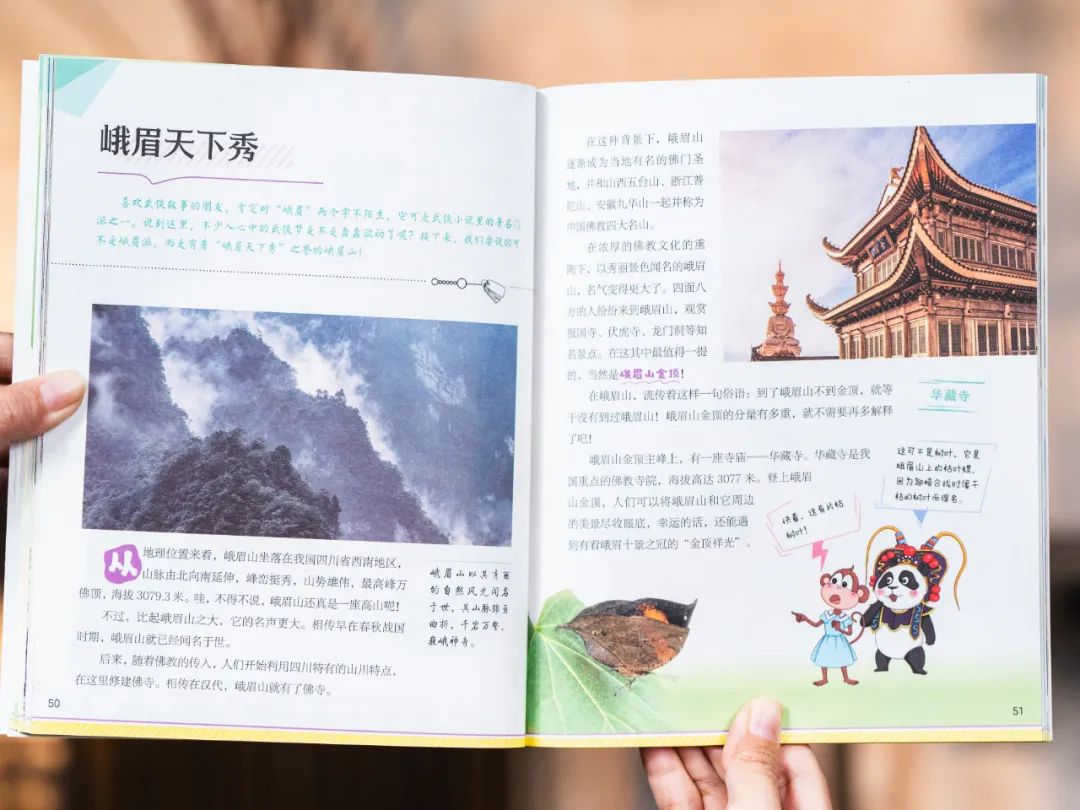 峨眉天下秀
喜欢武侠故事的朋友，肯定对“峨眉”两个字不陌生，它可是武侠小说里的著名门
派之一。说到这里，不少人心中的武侠梦是不是蠢蠢欲动了呢？接下来，我们要说的可
不是峨眉派，而是有着“峨眉天下秀”之誉的峨眉山！
从地理位置来看，峨眉山坐落在我国四川省西南地区，
山脉由北向南延伸，峰峦挺秀，山势雄伟，最高峰万
佛顶，海拔 3079.3 米。哇，不得不说，峨眉山还真是一座高山呢！
不过，比起峨眉山之大，它的名声更大。相传早在春秋战国
时期，峨眉山就已经闻名于世。
后来，随着佛教的传入，人们开始利用四川特有的山川特点，
在这里修建佛寺。相传在汉代，峨眉山就有了佛寺。
峨眉山以其秀丽
的自然风光闻名
于世，其山脉绵亘
曲折，千岩万壑，
巍峨神奇。
50
在这种背景下，峨眉山
逐渐成为当地有名的佛门圣
地，并和山西五台山、浙江普
陀山、安徽九华山一起并称为
中国佛教四大名山。
在浓厚的佛教文化的熏
陶下，以秀丽景色闻名的峨眉
山，名气变得更大了。四面八
方的人纷纷来到峨眉山，观赏
报国寺、伏虎寺、龙门洞等知
名景点。在这其中最值得一提
的，当然是峨眉山金顶！
在峨眉山，流传着这样一句俗语：到了峨眉山不到金顶，就等
于没有到过峨眉山！峨眉山金顶的分量有多重，就不需要再多解释
了吧！
峨眉山金顶主峰上，有一座寺庙——华藏寺。华藏寺是我
国重点的佛教寺院，海拔高达 3077 米。登上峨眉
山金顶，人们可以将峨眉山和它周边
的美景尽收眼底，幸运的话，还能遇
到有着峨眉十景之冠的“金顶祥光”。
华藏寺
快看，这有片枯
树叶！
这可不是树叶，它是
峨眉山上的枯叶蝶，
因为翅膀合拢时像干
枯的树叶而得名。
51